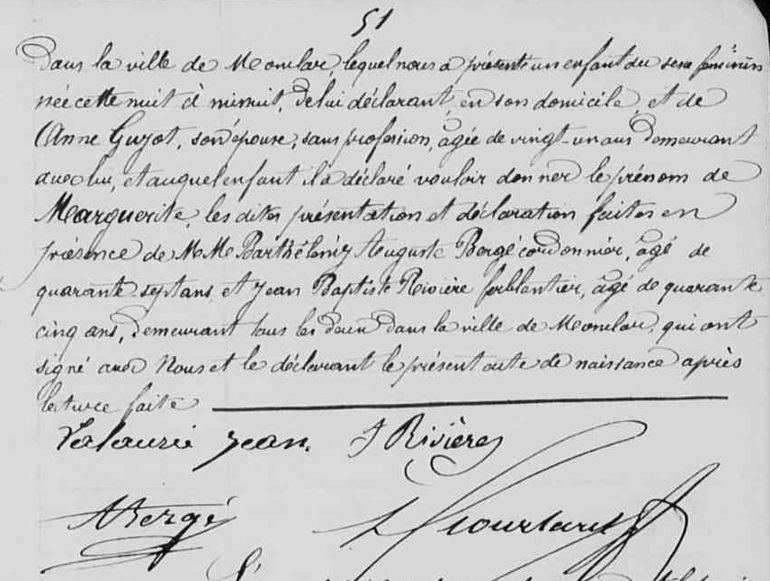 51
Dans la ville de Monclar, lequel nous a présenté un enfant du sexe féminin
née cette nuit à minuit, de lui déclarant, en son domicile, et de
Anne Guyot, son épouse, sans profession, âgée de vingt-un ans demeurant
avec lui, et auquel enfant il a déclaré vouloir donner le prénom de
Marguerite, les dites présentation et déclaration faites en
présence de M.M. Barthélemy Auguste Bergé cordonnier, âgé de
quarante-sept ans, et Jean Baptiste Rivière ferblantier, âgé de quarante
cinq ans, demeurant tous les deux dans la ville de Monclar, qui ont
signé avec Nous et le déclarant le présent acte de naissance après
lecture faite
Lalaurie Jean. J Rivière
ABergé